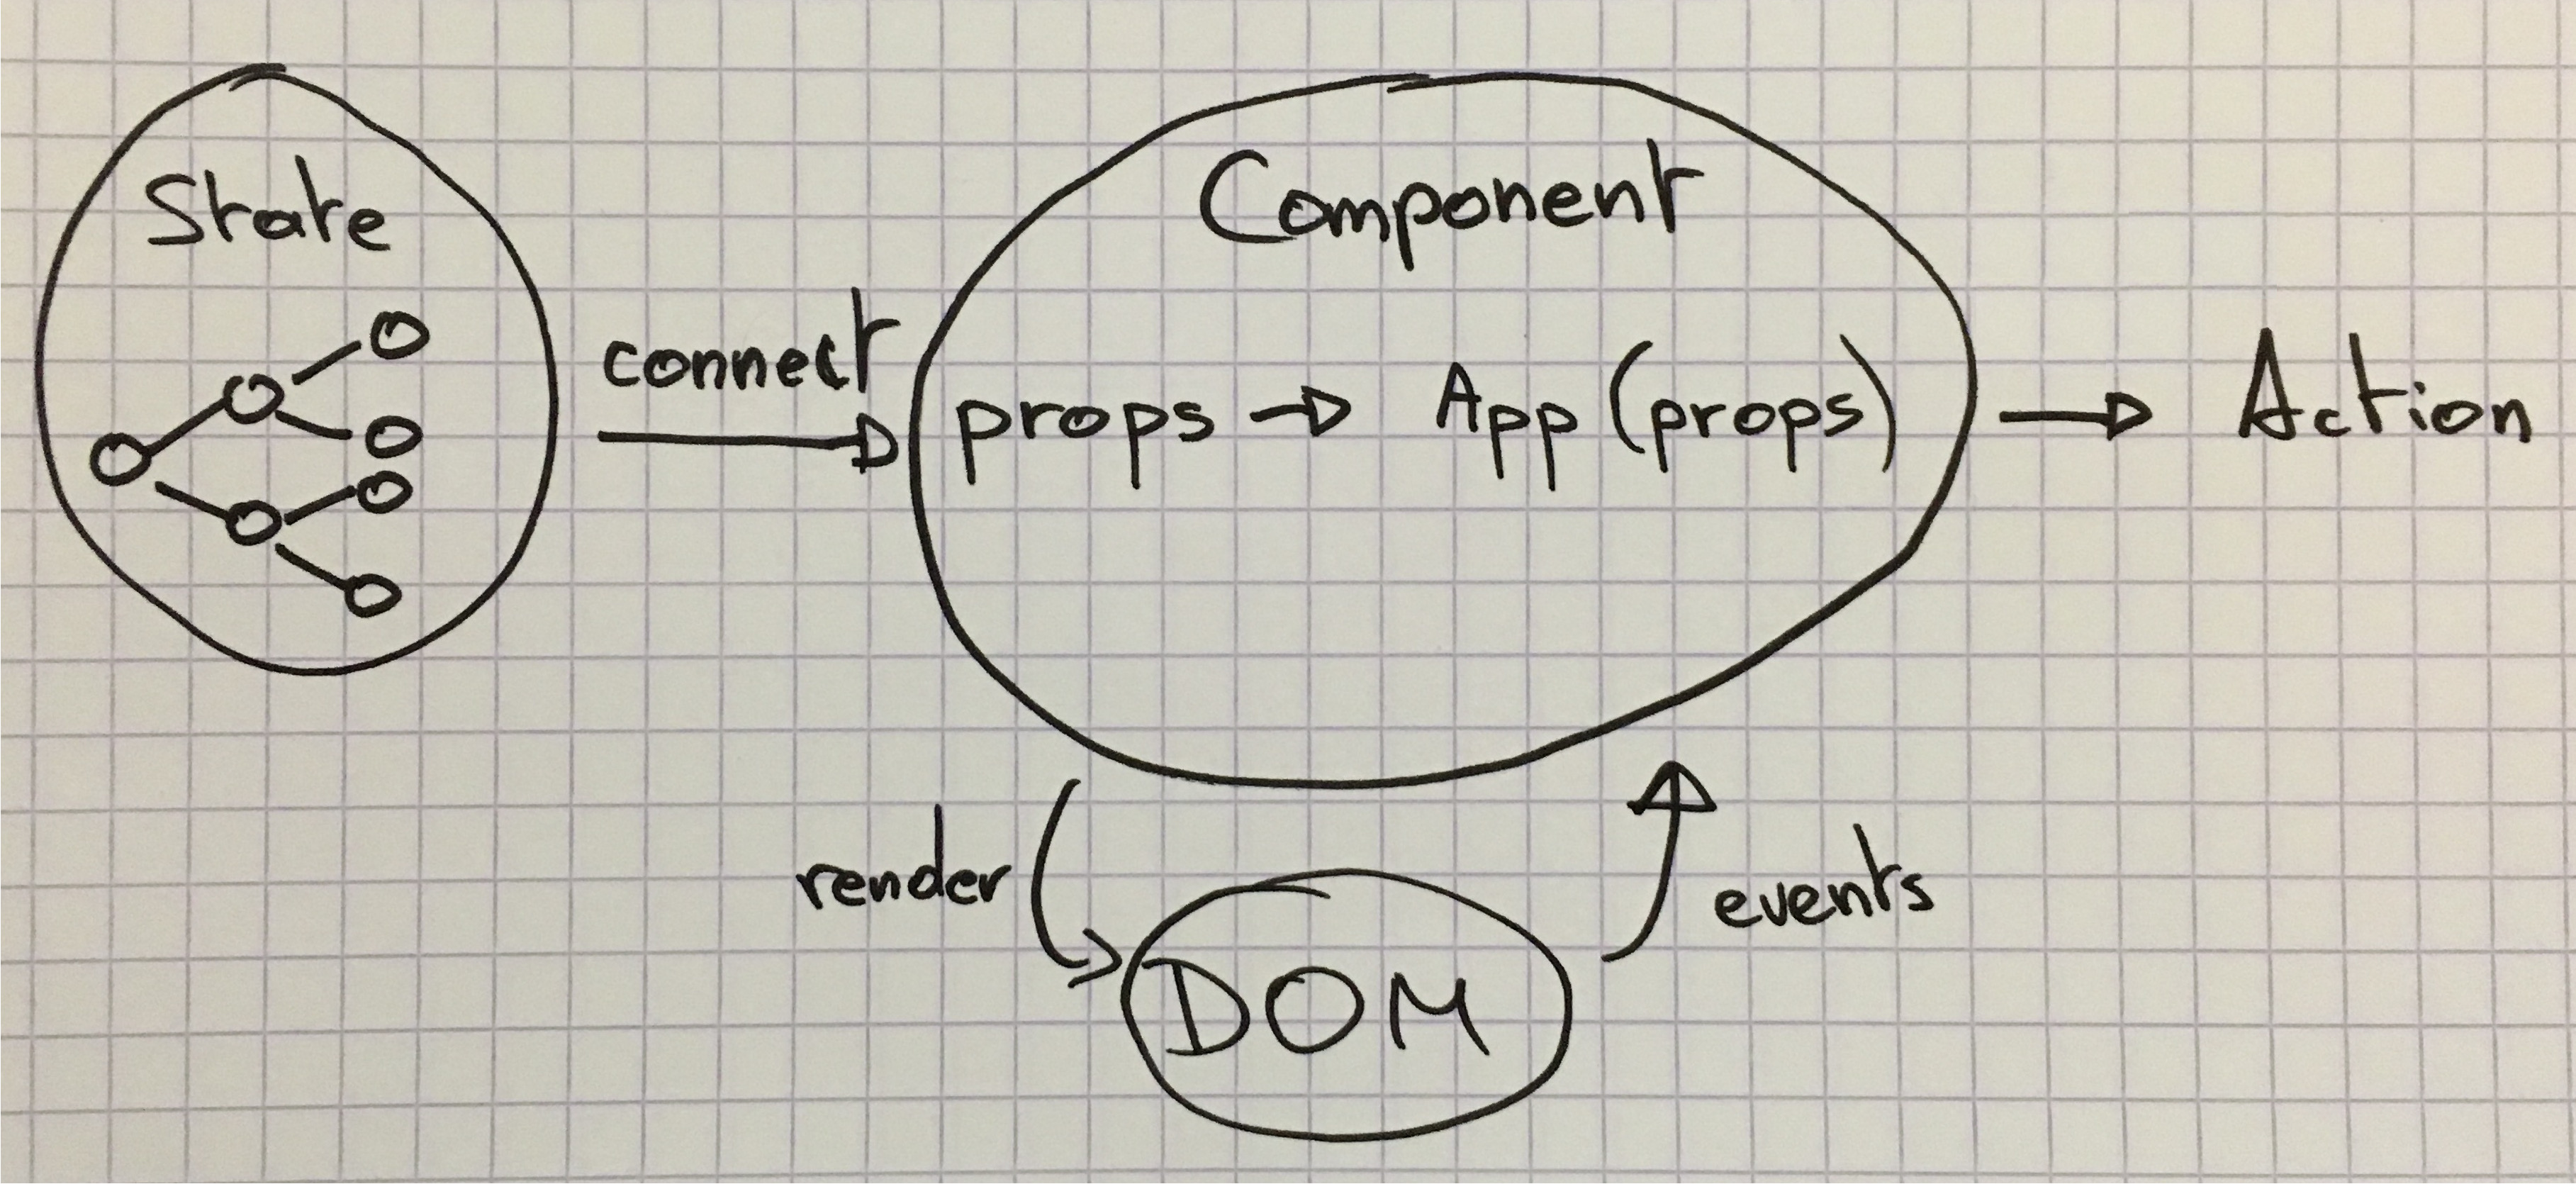 State
Component
connect
props → App (props) → Action
render
events
DOM